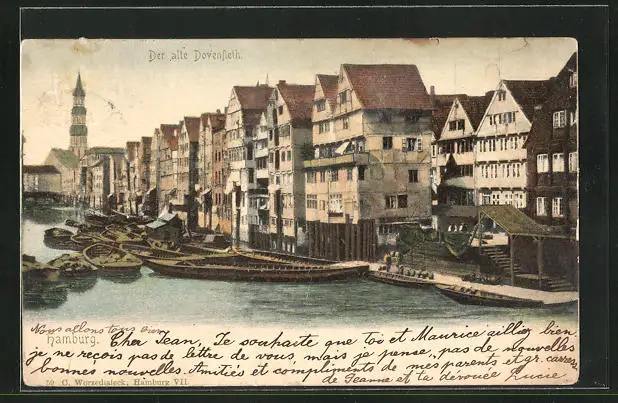 Der alte Dovenfleth.
Nous allons tous bien
Hamburg. Cher Jean, Je souhaite que toi et Maurice ailliez bien
je ne reçois pas de lettre de vous, mais je pense, "pas de nouvelles
bonnes nouvelles. Amitiés et compliments de mes parents et gr.
de Jeanne et ta dévouée Lucie
59 C. Worzedialeck, Hamburg VII.